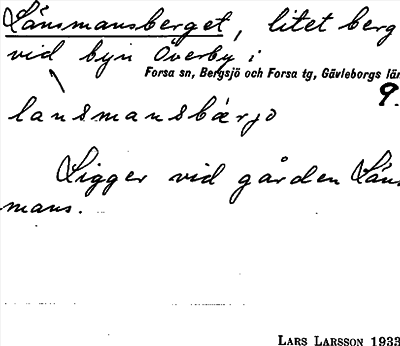 Länsmansberget, litet berg
vid byn Överby i
Forsa sn, Bergsjö och Forsa tg, Gävleborgs län
9.
lansmansbærjo
Ligger vid gården Läns
mans.
LARS LARSSON 1933